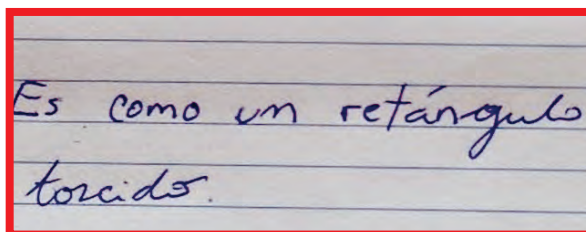 Es como un retángulo
torcido.